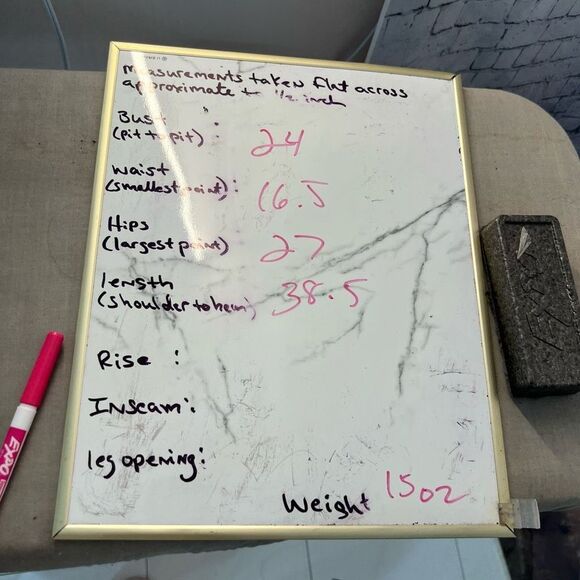 measurements taken flat across
approximate to 1/2 inch
Bust :
(pit to pit) : 24
waist
(smallest point) : 16.5
Hips
(largest point) 27
length
(shoulder to hem) 38.5
Rise :
Inseam :
leg opening :
Weight 15 oz
EXPO